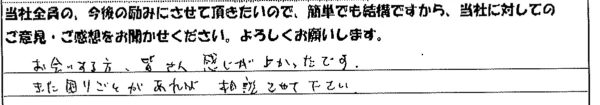 当社全員の、今後の励みにさせて頂きたいので、簡単でも結構ですから、当社に対しての
ご意見・ご感想をお聞かせください。よろしくお願いします。
お会いする方、皆さん 感じがよかったです.
また困りごとがあれば 相談させて下さい